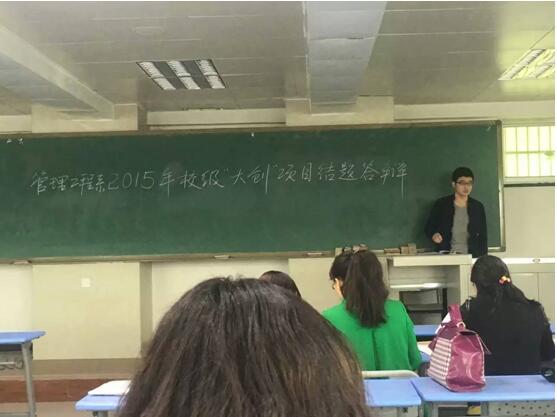 管理工程系2015年校级"大创"项目结题答辩